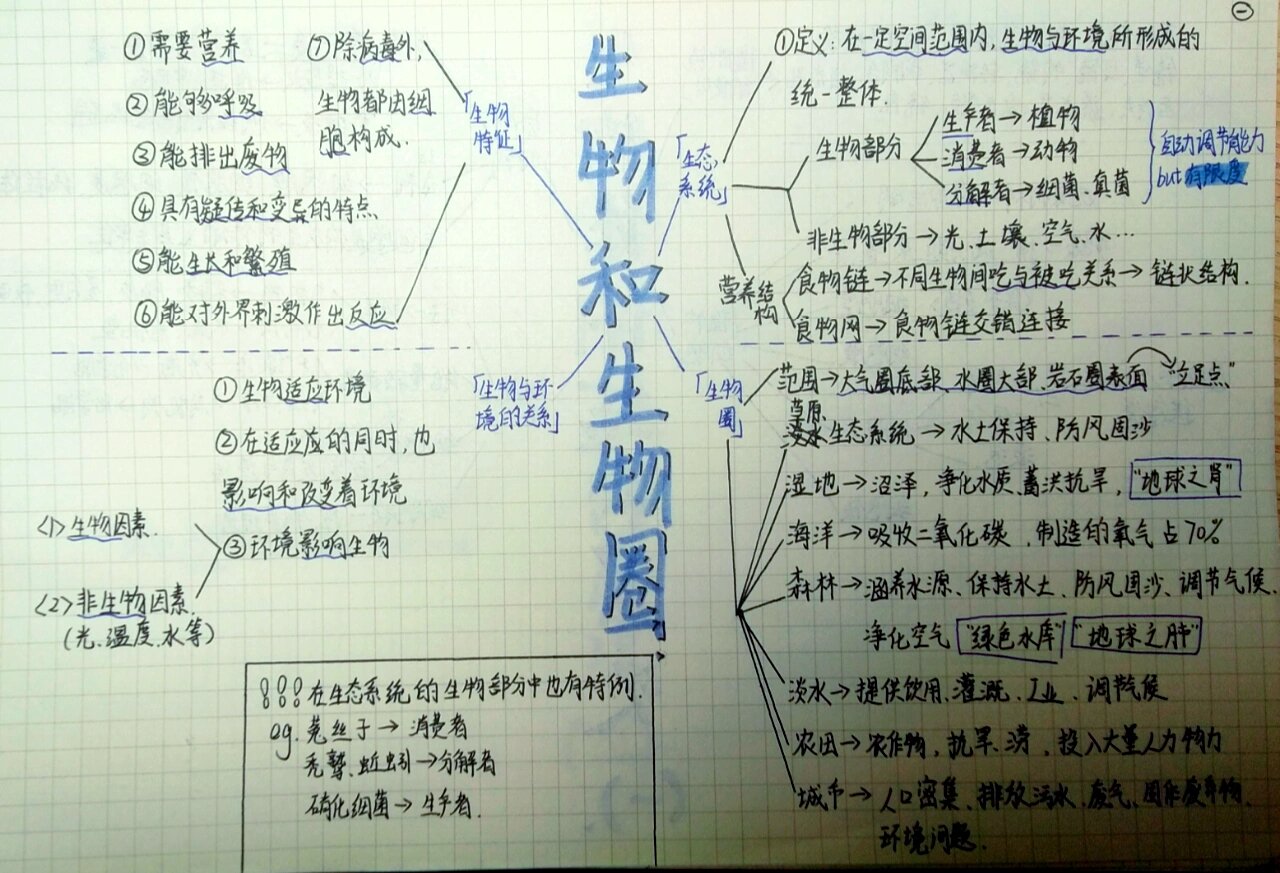 ㊀
生物和生物圈
「生物
特征」
①需要营养
②能够呼吸
③能排出废物
④具有疑传和变异的特点
⑤能生长和繁殖
⑥能对外界刺激作出反应
⑦除病毒外,
生物都由细
胞构成.
「生态
系统」
①定义:在一定空间范围内,生物与环境所形成的
统一整体.
生物部分
生产者→植物
消费者→动物
分解者→细菌、真菌
自动调节能力
but有限度
非生物部分→光、土壤、空气、水…
营养结
构
食物链→不同生物间吃与被吃关系→链状结构.
食物网→食物链交错连接
「生物与环
境的关系」
①生物适应环境
②在适应应的同时,也
影响和改变着环境
③环境影响生物
<1>生物因素.
<2>非生物因素.
(光、温度、水等)
「生物
圈」
范围→大气圈底部、水圈大部、岩石圈表面 "立足点"
草原
生态系统→水土保持、防风固沙
湿地→沼泽,净化水质、蓄洪抗旱,"地球之肾"
海洋→吸收二氧化碳,制造的氧气占70%
森林→涵养水源、保持水土、防风固沙、调节气候.
净化空气 "绿色水库" "地球之肺"
淡水→提供饮用、灌溉、工业、调节气候
农田→农作物,抗旱、涝,投入大量人力物力
城市→人口密集、排放污水、废气、固体废弃物,
环境问题.
在生态系统的生物部分中也有特例.
eg.菟丝子→消费者
秃鹫、蚯蚓→分解者
硝化细菌→生产者.